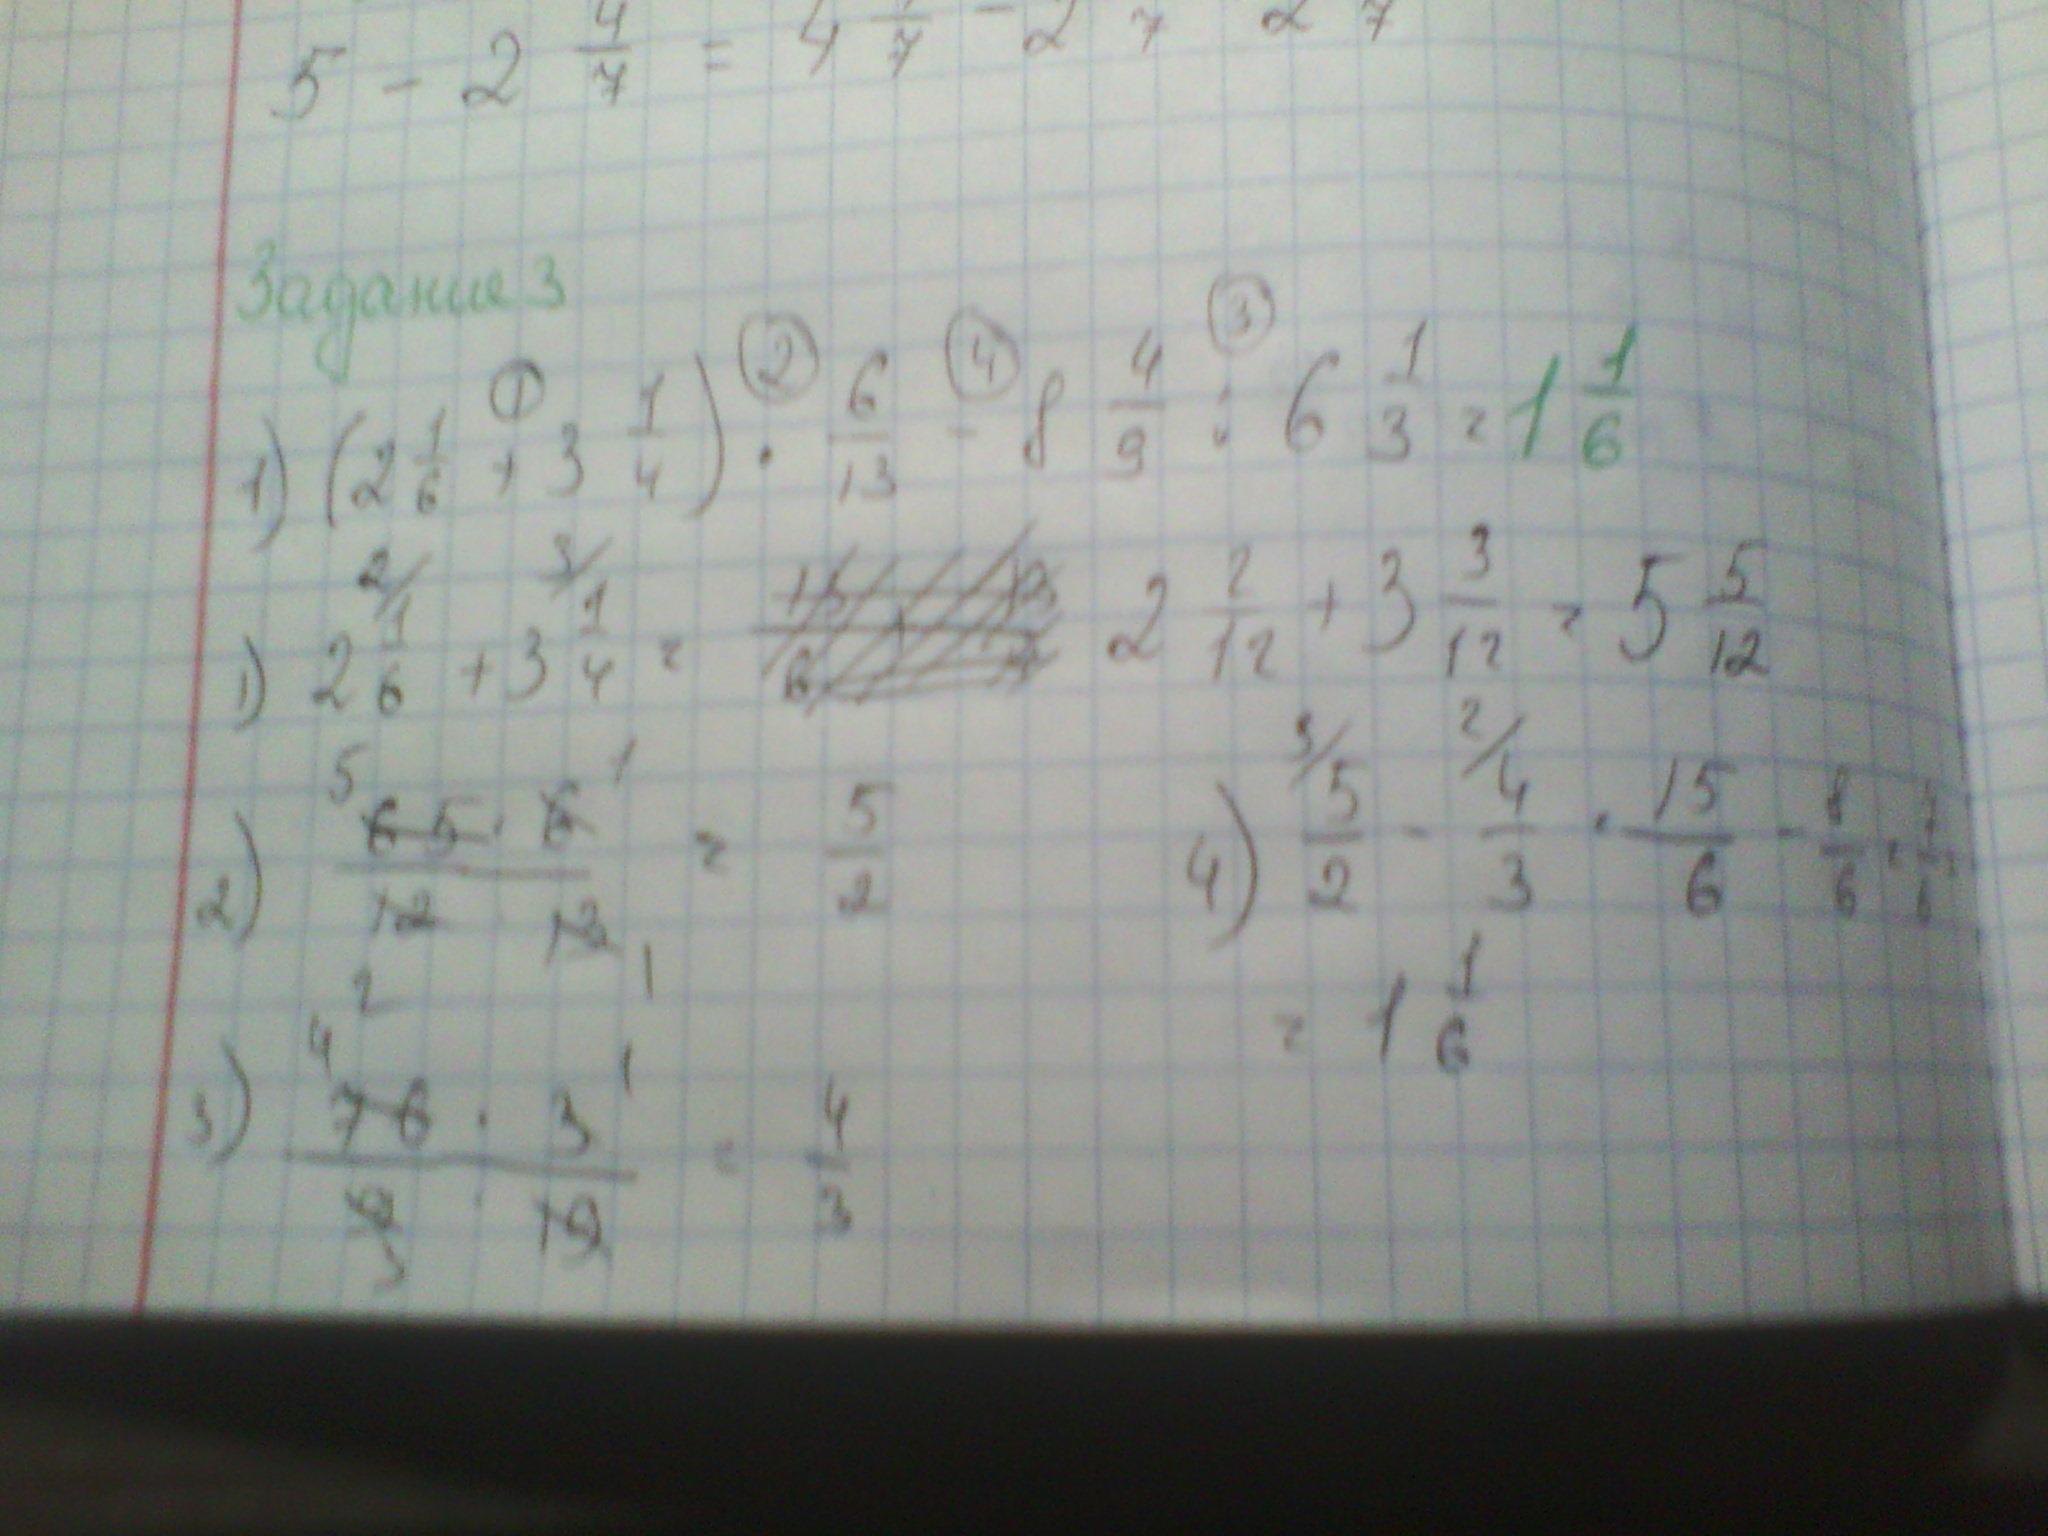 5 - 2 4/7 = 4 7/7 - 2 7 2 7
Задание 3
1) (2 1/6 + 3 1/4) · 6/13 - 8 4/9 : 6 1/3 = 1 1/6
① ② ④ ③
2/ 3/
1) 2 1/6 + 3 1/4 = 2 2/12 + 3 3/12 = 5 5/12
2) 65 · 6 / 12 = 5/2
5 1 2 1
3) 76 · 3 / 9 · 19 = 4/3
4 1 3
3/ 2/
4) 5/2 - 4/3 = 15/6 - 8/6 = 7/6 =
= 1 1/6